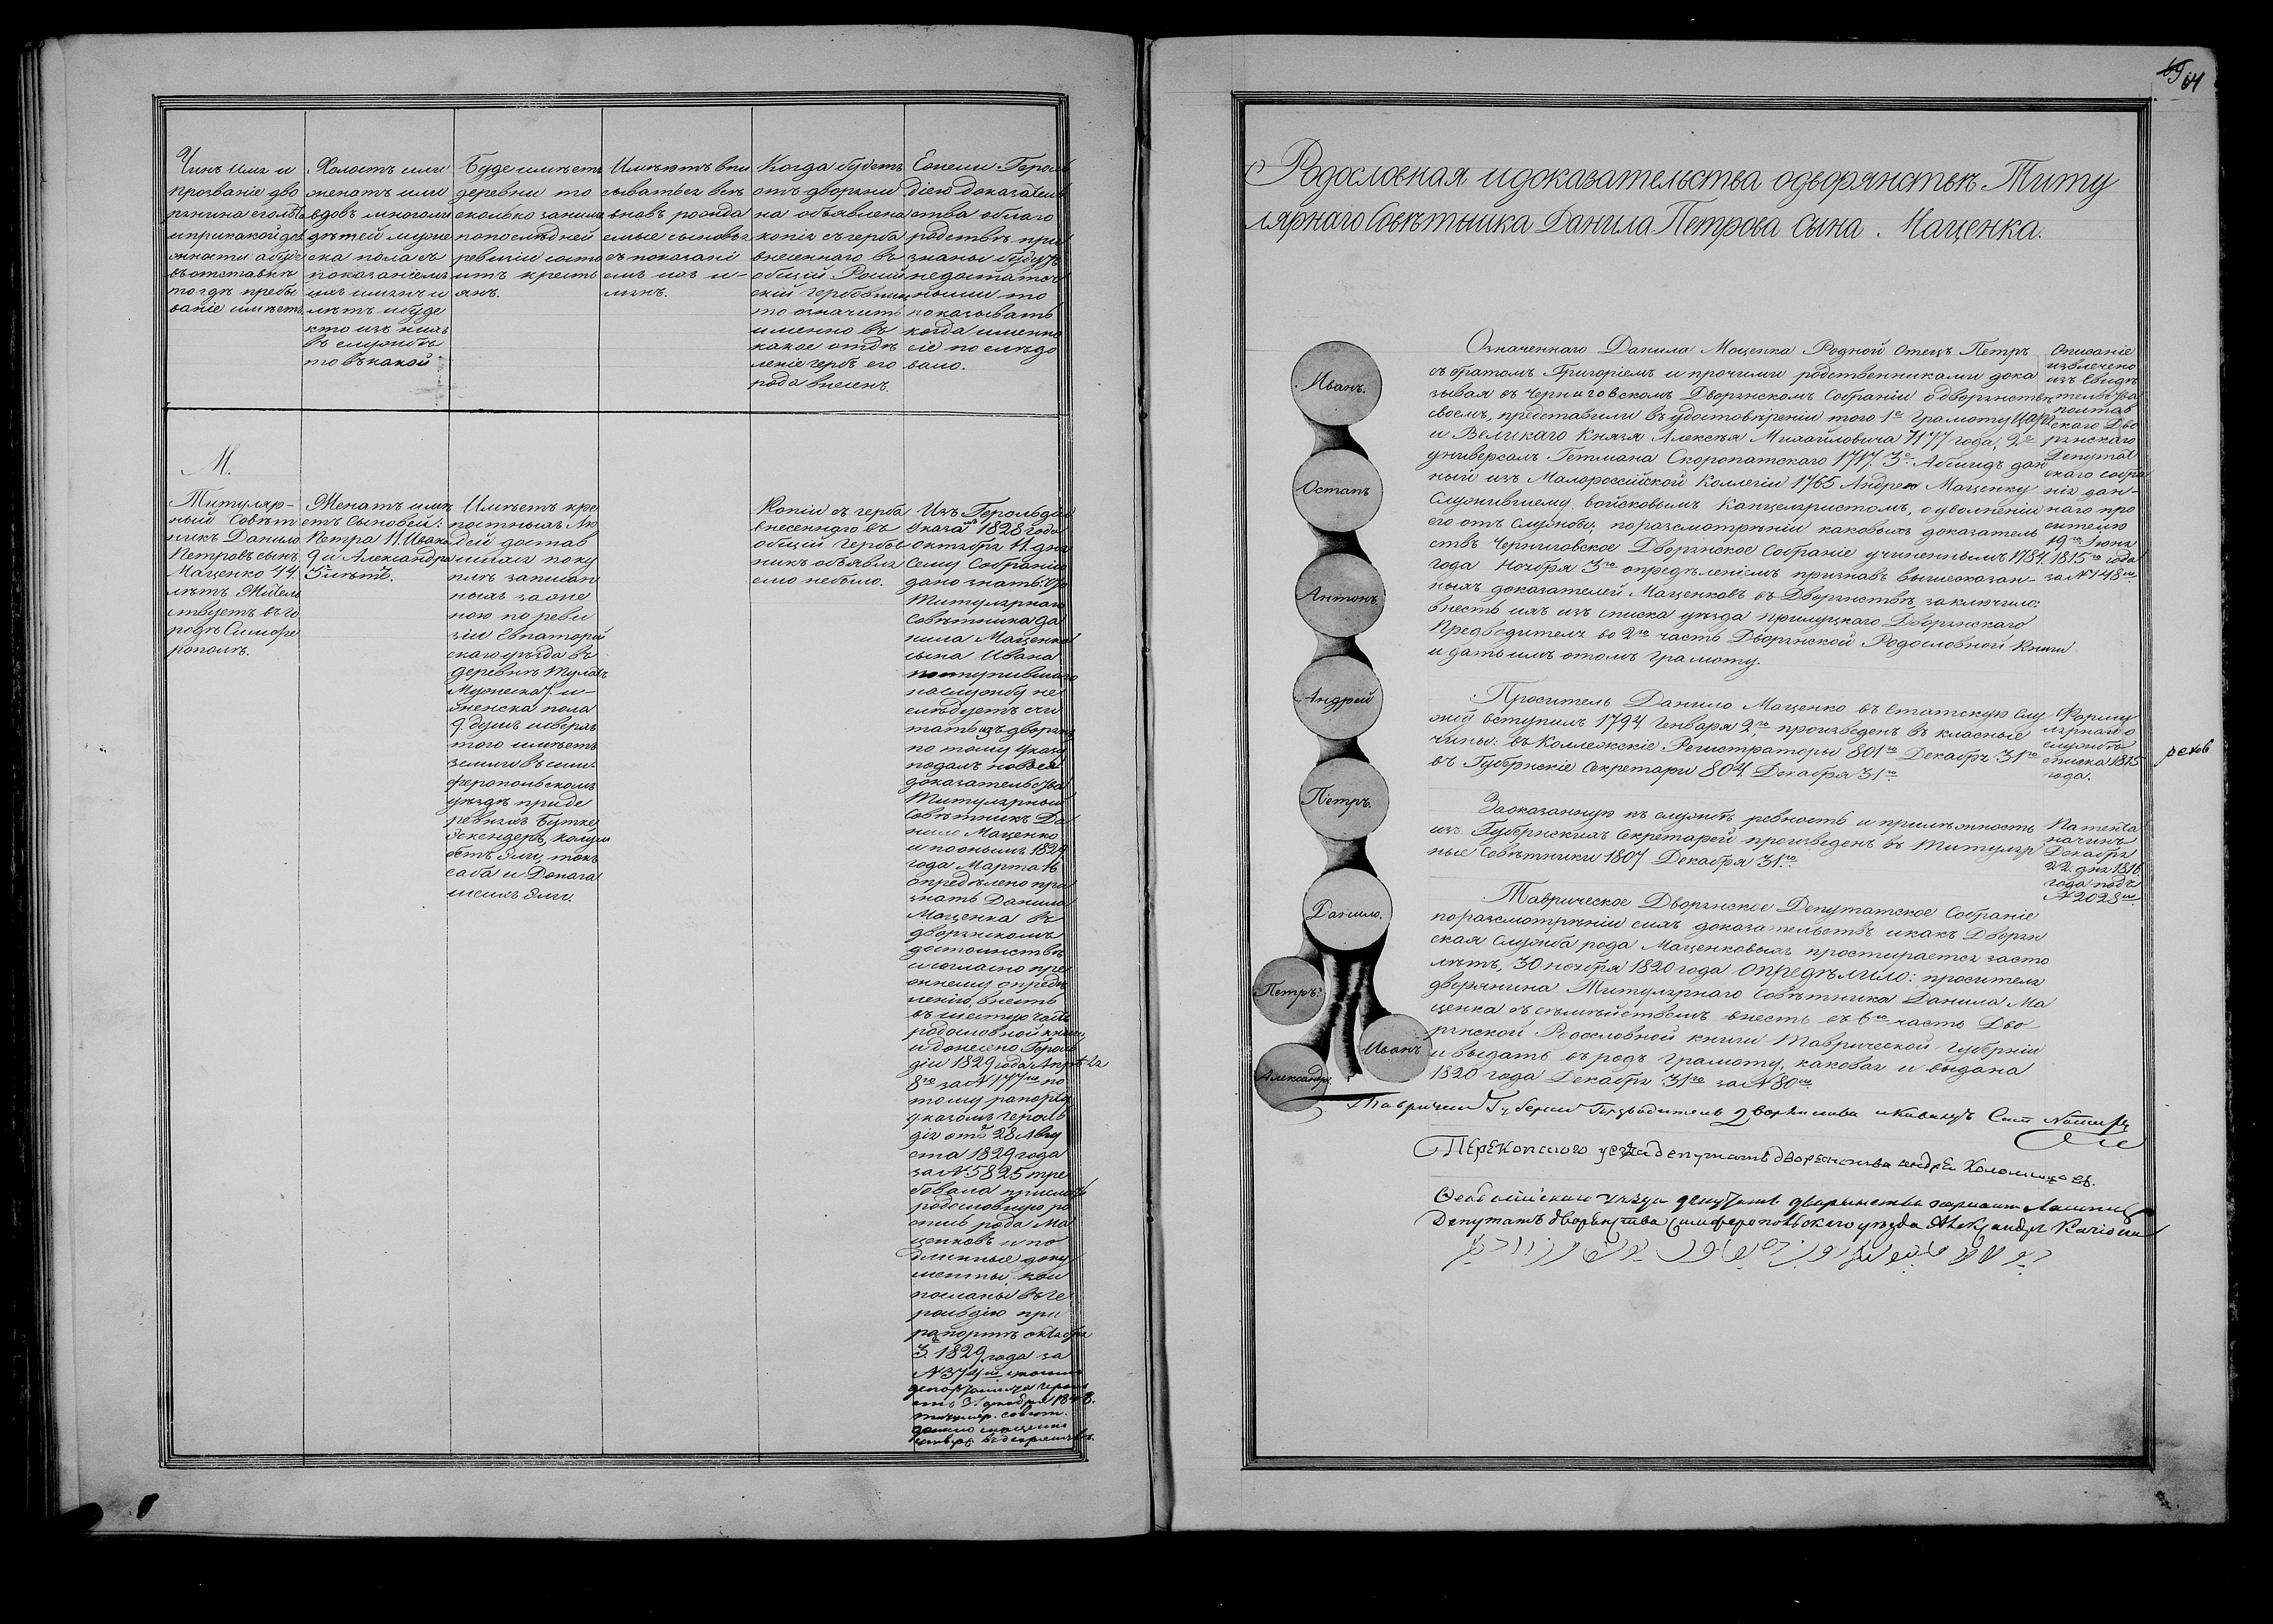 Чинъ имя и
прозваніе дво
рянина сколько
и при какой дол
жности а буде
въ отставкѣ
то гдѣ пребы
ваніе имѣетъ
Холостъ или
женатъ или
вдовъ много ли
дѣтей муже
ска пола съ
показаніемъ
ихъ имянъ и
лѣтъ и буде
кто изъ нихъ
въ службѣ
то въ какой
Буде имѣетъ
деревни то
сколько за ними
по послѣдней
ревизіи состо
итъ кресть
янъ.
Имѣютъ впи
сыватся всѣ
вновь рожда
емые сыновья
съ показані
емъ ихъ и-
мянъ.
Когда будетъ
отъ дворяни
на объявлена
копія съ герба
внесеннаго въ
общій Росій
скій гербовникъ
то означить
именно въ
какое отдѣ
леніе гербъ его
рода внесенъ.
Ежели Героль
діею доказатель
ства о благо
родствѣ при
знаны будутъ
недостаточ
ными то
показывать
когда именно
сіе послѣдо
вало.
М.
Титуляр-
ный Совѣт
никъ Данило
Петровъ сынъ
Маценко 44.
лѣтъ Житель
ствуетъ въ го
родѣ Симфе
рополѣ.
Женатъ имѣ
етъ сыновей:
Петра 11. Ивана
9 и Александра
3 лѣтъ.
Имѣетъ кре
постныхъ лю
дей достав
шихся поку
пкѣ записан
ныхъ за оне
ною по реви
зіи Евпаторій
скаго уѣзда въ
деревнѣ Тулатъ
Мужеска 7. и-
женска пола
9 душъ и сверхъ
того имѣетъ
землю въ сим
феропольскомъ
уѣздѣ при де
ревняхъ Бутке
Эскендеръ,
Эли, токъ
саба и Донага
Эли.
Копіи съ герба
внесеннаго въ
общій Гербов
никъ объявля
емо небыло.
Изъ Герольдіи
указа 1828 года
октября 11 дня
сему Собранію
дано знать: что
Титулярнаго
Совѣтника Да
нила Маценко
сына Ивана
поступившаго
на службу не
слѣдуетъ счи
тать изъ дворянъ
по тому указу
подалъ новыя
доказательства
Титулярный
Совѣтникъ Да
нило Маценко
и по онымъ 1829
года Марта 16
опредѣлено при
знать Данила
Маценка въ
дворянскомъ
достоинствѣ
и согласно пре
жнему опредѣ
ленію, внесть
въ шестую часть
родословной книги,
и донесено Героль
діи 1829 года Апрѣля
8го за № 177мъ по
тому рапорту
указомъ Героль
дія отъ 28 Авгу
ста 1829 года
за № 5825 тре
бовала прислать
родословную ро
спись рода Ма
ценковъ и по
длинные доку
менты, кои
посланы въ Ге
рольдію при
рапортѣ октября
3. 1829 года за
№ 374мъ
69 64
Родословная и доказательства о дворянствѣ Титу
лярнаго Совѣтника Данила Петрова Сына Маценка.
Иванъ.
Остапъ
Антонъ.
Андрей
Петръ.
Данило.
Петръ.
Иванъ
Александръ
Означеннаго Данила Маценка Родной Отецъ Петръ
съ братомъ Григоріемъ и прочими родственниками дока
зывая въ Черниговскомъ Дворянскомъ Собраніи о дворянствѣ
своемъ, представили въ удостовѣреніи того 1е Грамоту Царя
и Великаго Князя Алексѣя Михайловича 7177 года, 2е
универсалъ Гетмана Скоропатскаго 1717. 3е Абшидъ дан
ный изъ Малороссійской Коллегіи 1765 Андрею Маценку
Служившему войсковымъ Канцеляристомъ, о увольненіи
его отъ службы, по разсмотрѣніи каковыхъ доказатель
ствъ Черниговское Дворянское Собраніе учиненнымъ 1784.
года Ноября 3го опредѣленіемъ признавъ вышесказан-
ныхъ доказателей Маценковъ въ Дворянствѣ, заключило:
внесть ихъ изъ списка уѣзда прилуцкаго Дворянскаго
Предводителя во 2ю часть Дворянской Родословной Книги
и дать имъ о томъ грамоту.
Описаніе
извлечено
изъ Свидѣ
тельства
Полтав
скаго Дво
рянскаго
Депутат
скаго собра
нія дан-
наго про
сителю
19го Іюня
1815го года
за № 148мъ
Проситель Данило Маценко въ Статскую Слу
жбу вступилъ 1794 Генваря 2го, произведенъ въ класные
чины: въ Коллежскіе Регистраторы 801го Декабря 31го
въ Губернскіе Секретари 804 Декабря 31го.
Форму
лярнаго о
службѣ
списка 1815
года.
За оказанную къ службѣ ревность и прилѣжность
изъ Губернскихъ Секретарей произведенъ въ Титуляр
ные Совѣтники 1807 Декабря 31го
Патента
на чинъ
Декабря
22 дня 1816
года подъ
№ 2028мъ
Таврическое Дворянское Депутатское Собраніе
по разсмотрѣніи сихъ доказательствъ и какъ Дворян
ская Служба рода Маценковыхъ простирается за сто
лѣтъ, 30 ноября 1820 года Опредѣлило: просителя
дворянина Титулярнаго Совѣтника Данила Ма
ценка съ семѣйствомъ внесть въ 6ю часть Дво
рянской Родословной книги Таврической Губерніи
и выдать въ родъ грамоту, каковая и выдана
1820 года Декабря 31го за № 80мъ
Перекопского уезда депутатъ дворенства андрей Коломийцовъ.
Депутатъ дворянства Симферопольскаго уезда Александръ